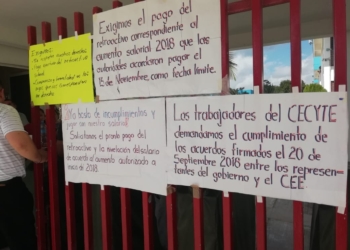 Exigimos el pago del
retroactivo correspondiente al
aumento salarial 2018 que las
autoridades acordaron pagar el
15 de Noviembre, como fecha límite.
Ya basta de incumplimientos y
juego con nuestro salario
Solicitamos el pronto pago del
retroactivo y la nivelación del salario
de acuerdo al aumento autorizado a
2018
Los trabajadores del CECYTE
demandamos el cumplimiento de
los acuerdos firmados el 20 de
Septiembre 2018 entre los represen-
tantes del gobierno y el CEE